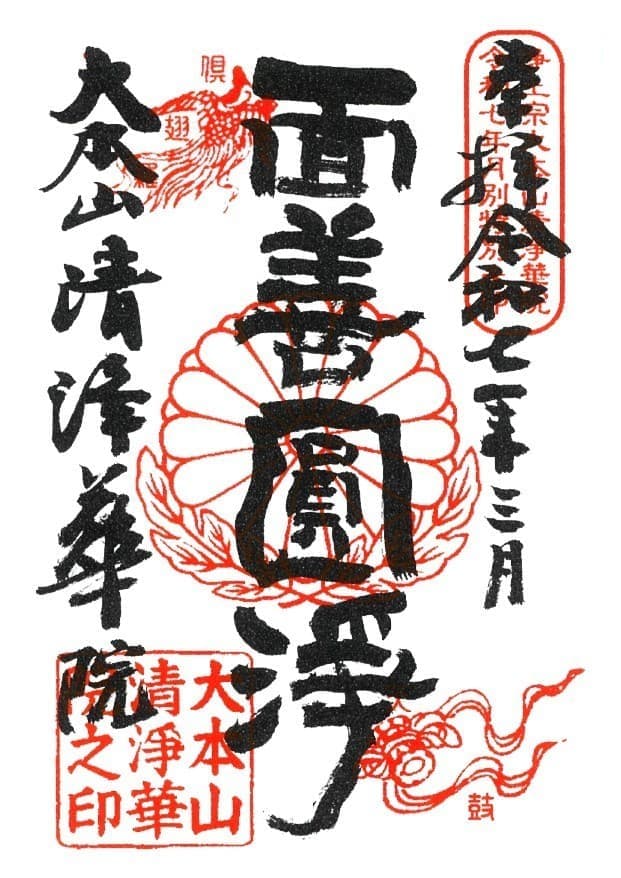 奉拝 令和七年三月
浄土宗大本山清浄華院
令和七年月別特別
面善圓淨
倶翅羅
大本山清浄華院
大本山
清淨華
院之印
鼓